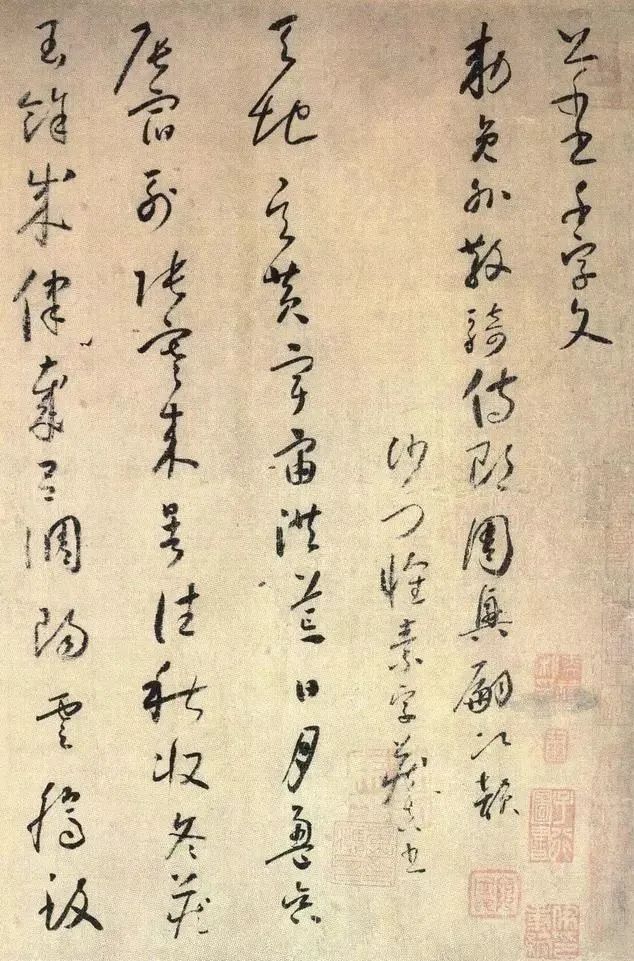 草書千字文
勅員外散騎侍郎周興嗣次韻
沙門懷素字藏真書
天地玄黄宇宙洪荒日月盈昃
辰宿列張寒来暑往秋收冬藏
閏餘成律歲吕調陽雲騰致